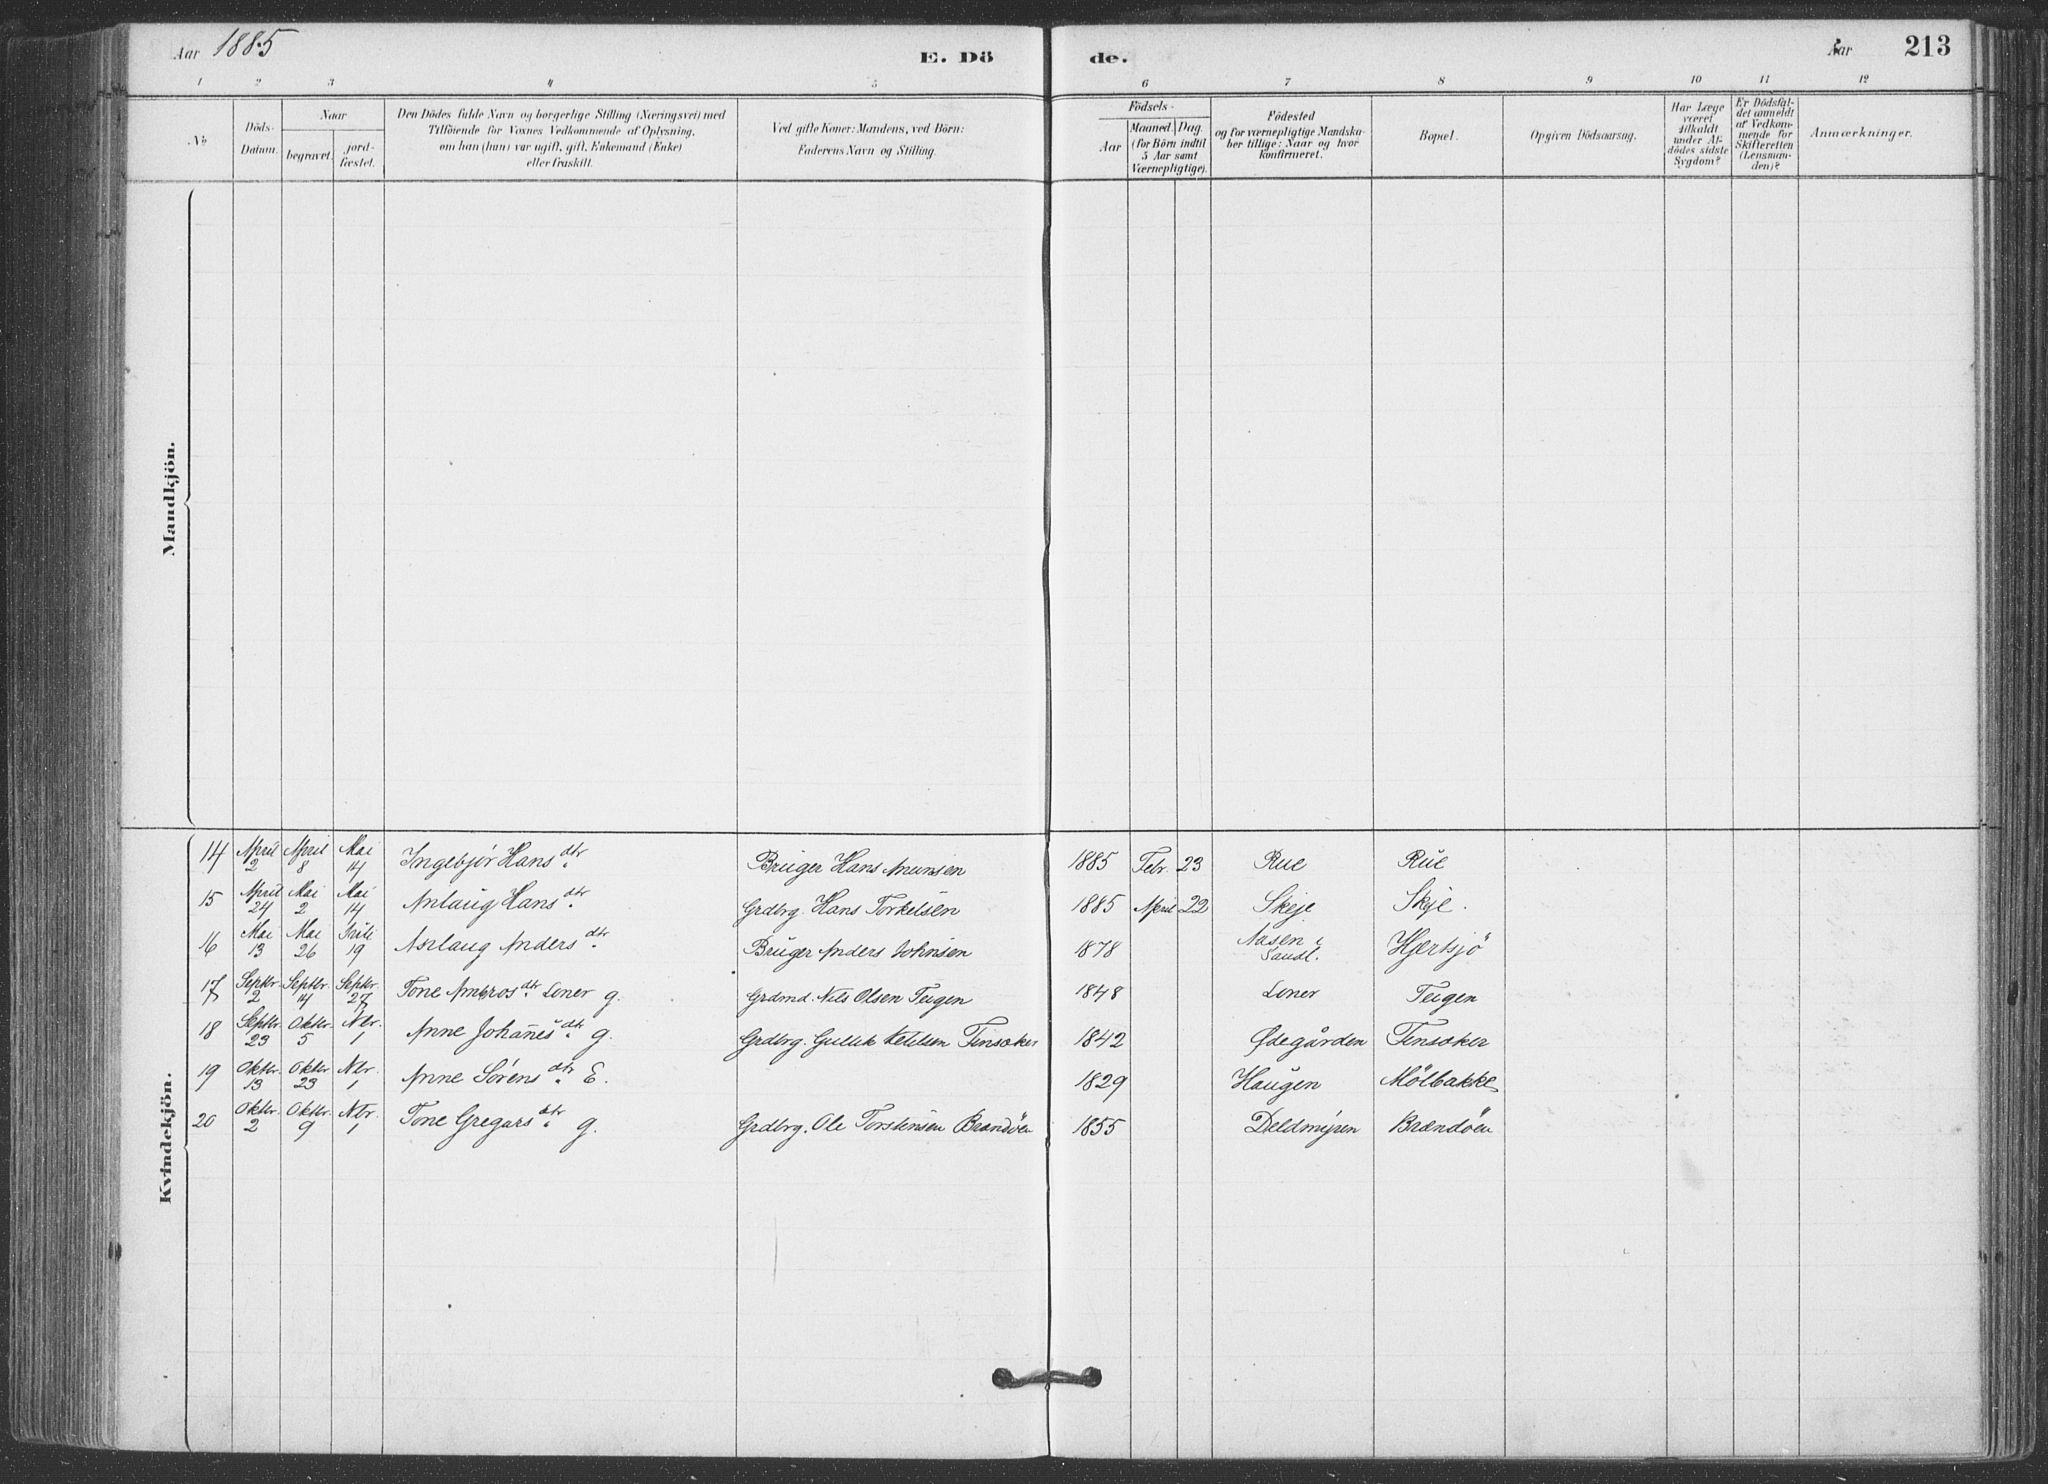 Aar 1885
E. Dö
de.
Aar
213
1 2 3 4 5 6 7 8 9 10 11 12
No
Döds-
Datum.
Naar
begravet.
jord-
fæstet.
Den Dödes fulde Navn og borgerlige Stilling (Næringsvei) med
Tilföiende for Voxnes Vedkommende af Oplysning,
om han (hun) var ugift, gift, Enkemand (Enke)
eller fraskilt.
Ved gifte Koner: Mandens, ved Börn:
Faderens Navn og Stilling.
Födsels-
Aar
Maaned. Dag.
(for Börn indtil
5 Aar samt
Værnepligtige).
Födested
og for værnepligtige Mandska-
ber tillige: Naar og hvor
konfirmeret.
Bopæl.
Opgiven Dödsaarsag.
Har Læge
været
tilkaldt
under Af-
dödes sidste
Sygdom?
Er Dödsfal-
det anmeldt
af Vedkom-
mende for
Skifteretten
(Lensman-
den)?
Anmærkninger.
Mandkjön.
Kvindekjön.
14 April 2 April 8 Mai 14 Ingebjør Hansdtr. Brüger Hans 1885 Febr. 23 Rue Rue
15 April 24 Mai 2 Mai 14 Anlaug Hansdtr. Grdbrg. Hans Torkelsen 1885 April 22 Skeje Skeje.
16 Mai 13 Mai 26 19 Aslaug Andersdtr. Brüger Anders Johnsen 1878 Aasen i Saudl. Hjertsjö
17 Septbr. 2 Septbr. 14 Septbr. 27 Tone Ambrosdtr. Loner g. Grdmd. Nils Olsen Teigen 1848 Loner Teigen
18 Septbr. 23 Oktbr. 5 Nbr. 1 Anne Johañesdtr. g. Grdbrg. Gulik Ketilsen Tinsaker 1842 Ødegården Tinsaker
19 Oktbr. 13 Oktbr 23 Nbr. 1 Anne Sørensdtr. E. 1829 Haugen Mölbakke
20 Oktbr. 2 Oktbr. 9 Nbr. 1 Tone Gregarsdtr. g. Grdbrg. Ole Torstensen Brandöen 1855 Deldmyren Brændöen